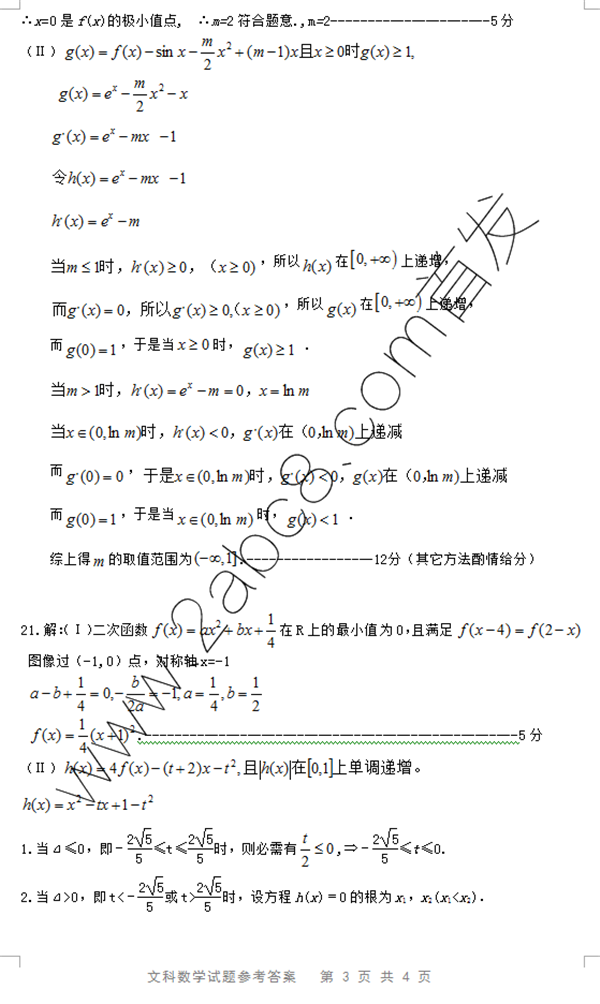 ∴x=0 是 f(x)的极小值点, ∴m=2 符合题意.,m=2-----------------------5 分
(Ⅱ) g(x) = f(x)−sin x−m/2 x²+(m−1)x且x≥0时g(x)≥1,
g(x)=eˣ−m/2 x²−x
g'(x)=eˣ−mx −1
令h(x)=eˣ−mx −1
h'(x)=eˣ−m
当m≤1时，h'(x)≥0，（x≥0），所以h(x)在[0,+∞)上递增,
而g'(x)=0，所以g'(x)≥0,(x≥0)，所以g(x)在[0,+∞)上递增,
而g(0)=1，于是当x≥0时，g(x)≥1.
当m>1时，h'(x)=eˣ−m=0，x=ln m
当x∈(0,ln m)时，h'(x)<0，g'(x)在（0，ln m)上递减
而g'(0)=0，于是x∈(0,ln m)时，g'(x)<0，g(x)在（0，ln m)上递减
而g(0)=1，于是当x∈(0,ln m)时，g(x)<1.
综上得m的取值范围为(−∞,1].------------------12分（其它方法酌情给分）
21.解:(Ⅰ)二次函数 f(x)=ax²+bx+1/4 在 R 上的最小值为 0,且满足 f(x−4)=f(2−x)
图像过（-1,0）点，对称轴 x=-1
a−b+1/4=0,−b/2a=−1,a=1/4,b=1/2
f(x)=1/4(x+1)².------------------------------------------------------5 分
(Ⅱ) h(x)=4f(x)−(t+2)x−t²,且|h(x)|在[0,1]上单调递增。
h(x)=x²−tx+1−t²
1.当Δ≤0，即-2√5/5≤t≤2√5/5时，则必需有t/2≤0,⇒-2√5/5≤t≤0.
2.当Δ>0，即t<-2√5/5或t>2√5/5时，设方程 h(x)=0的根为x₁，x₂(x₁<x₂).
文科数学试题参考答案 第 3 页 共 4 页
www.2abc8.com首发